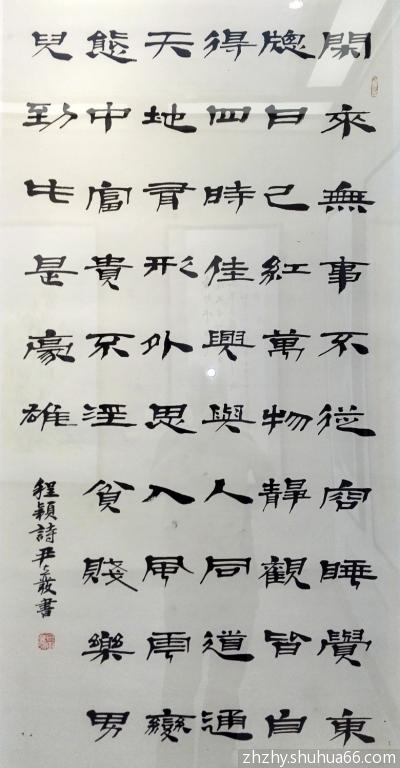 閑來無事不從容睡覺東
牕日已紅萬物靜觀皆自
得四時佳興與人同道通
天地有形外思入風雲變
態中富貴不淫貧賤樂男
兒到此是豪雄
程詩尹書
zhzhy.shuhua66.com